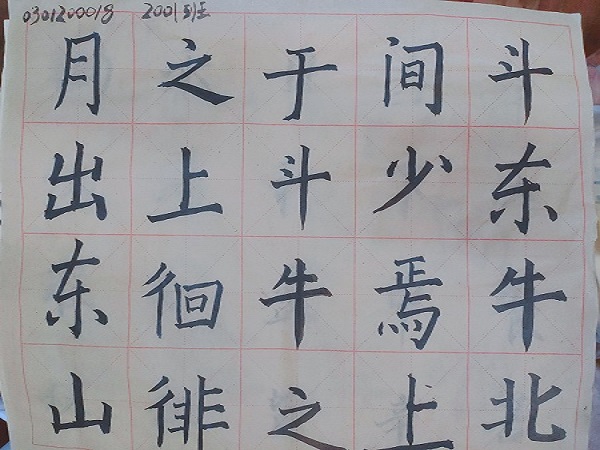 0301200018 2001班
月出东山
之上徊徘
于斗牛之
间少焉上
斗东牛北